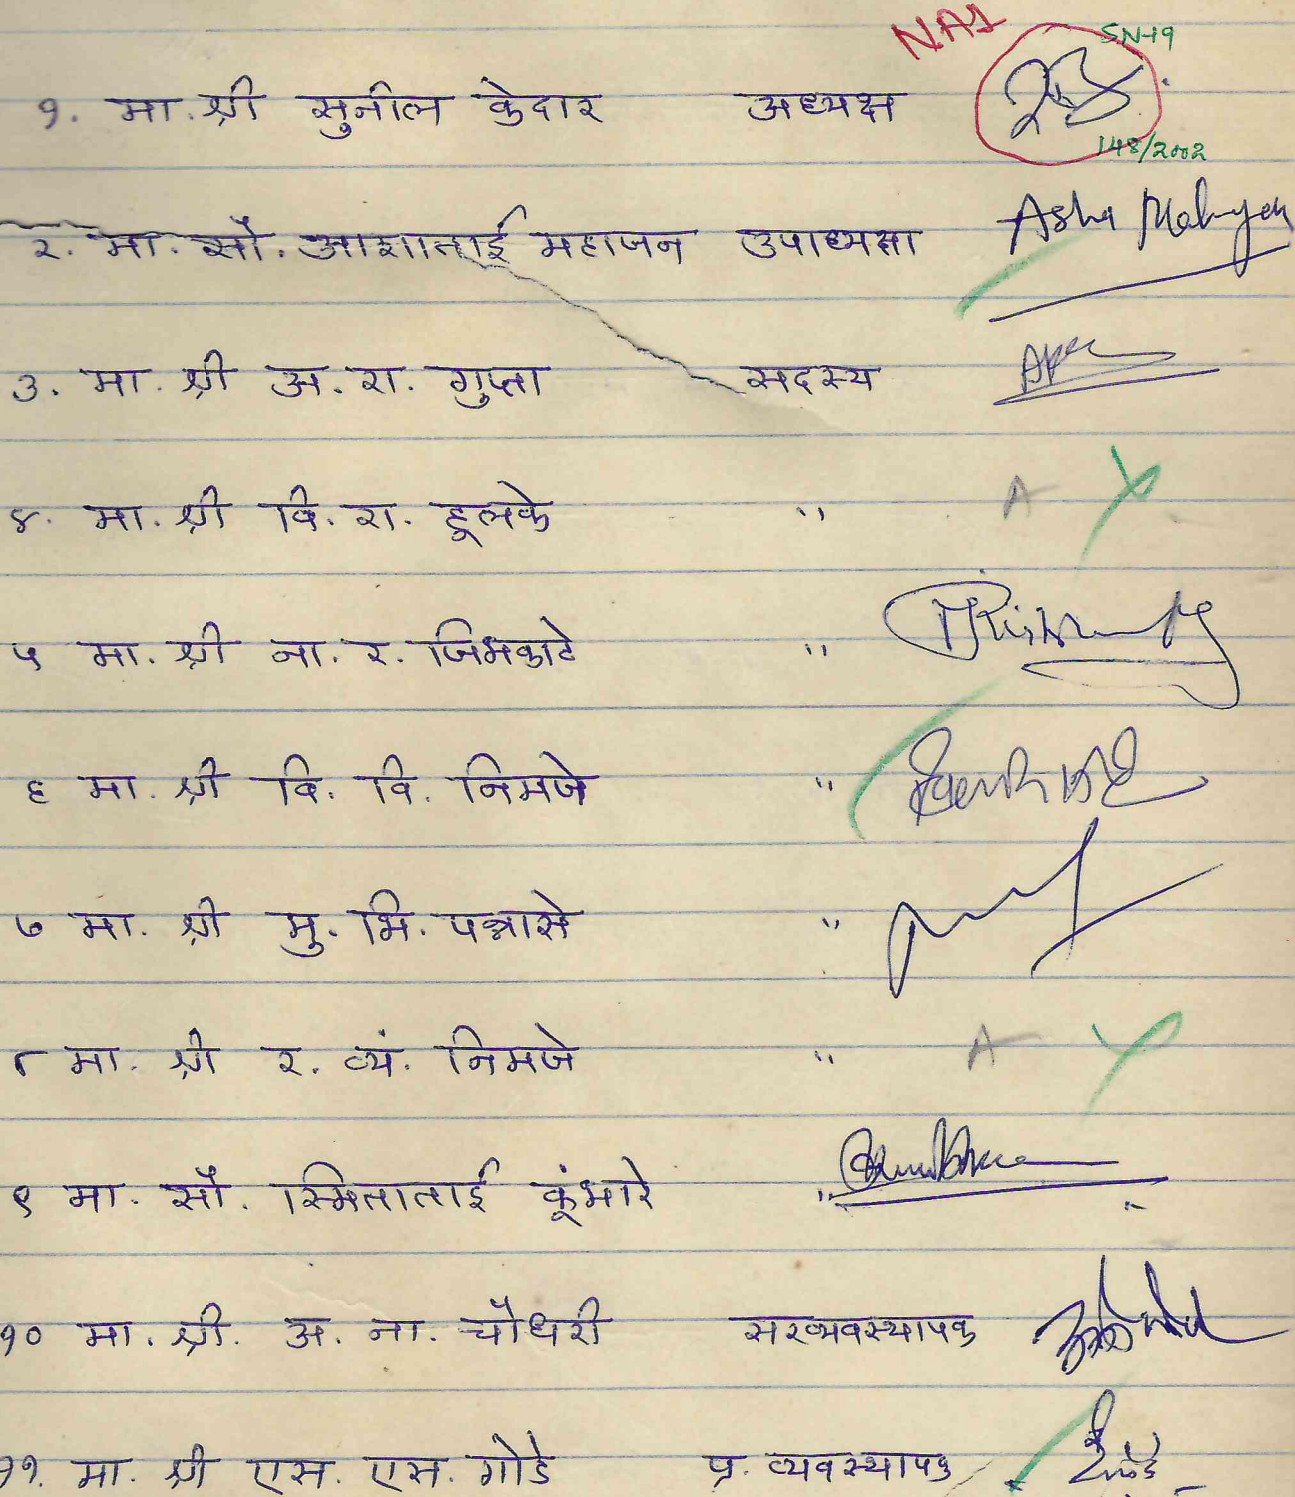 NA1
SN-19
१. मा. श्री सुनील केदार अध्यक्ष
148/2002
२. मा. सौ. आशाताई महाजन उपाध्यक्षा Asha
३. मा. श्री अ. रा. गुप्ता सदस्य
४. मा. श्री वि. रा. हूलके " A
५ मा. श्री ना. र. जिभकाटे "
६ मा. श्री वि. वि. निमजे "
७ मा. श्री मु. भि. पन्नासे "
८ मा. श्री र. व्यं. निमजे " A
९ मा. सौ. स्मिताताई कूंभारे "
१० मा. श्री. अ. ना. चौधरी सरव्यवस्थापक
११. मा. श्री एस. एस. गोडे प्र. व्यवस्थापक